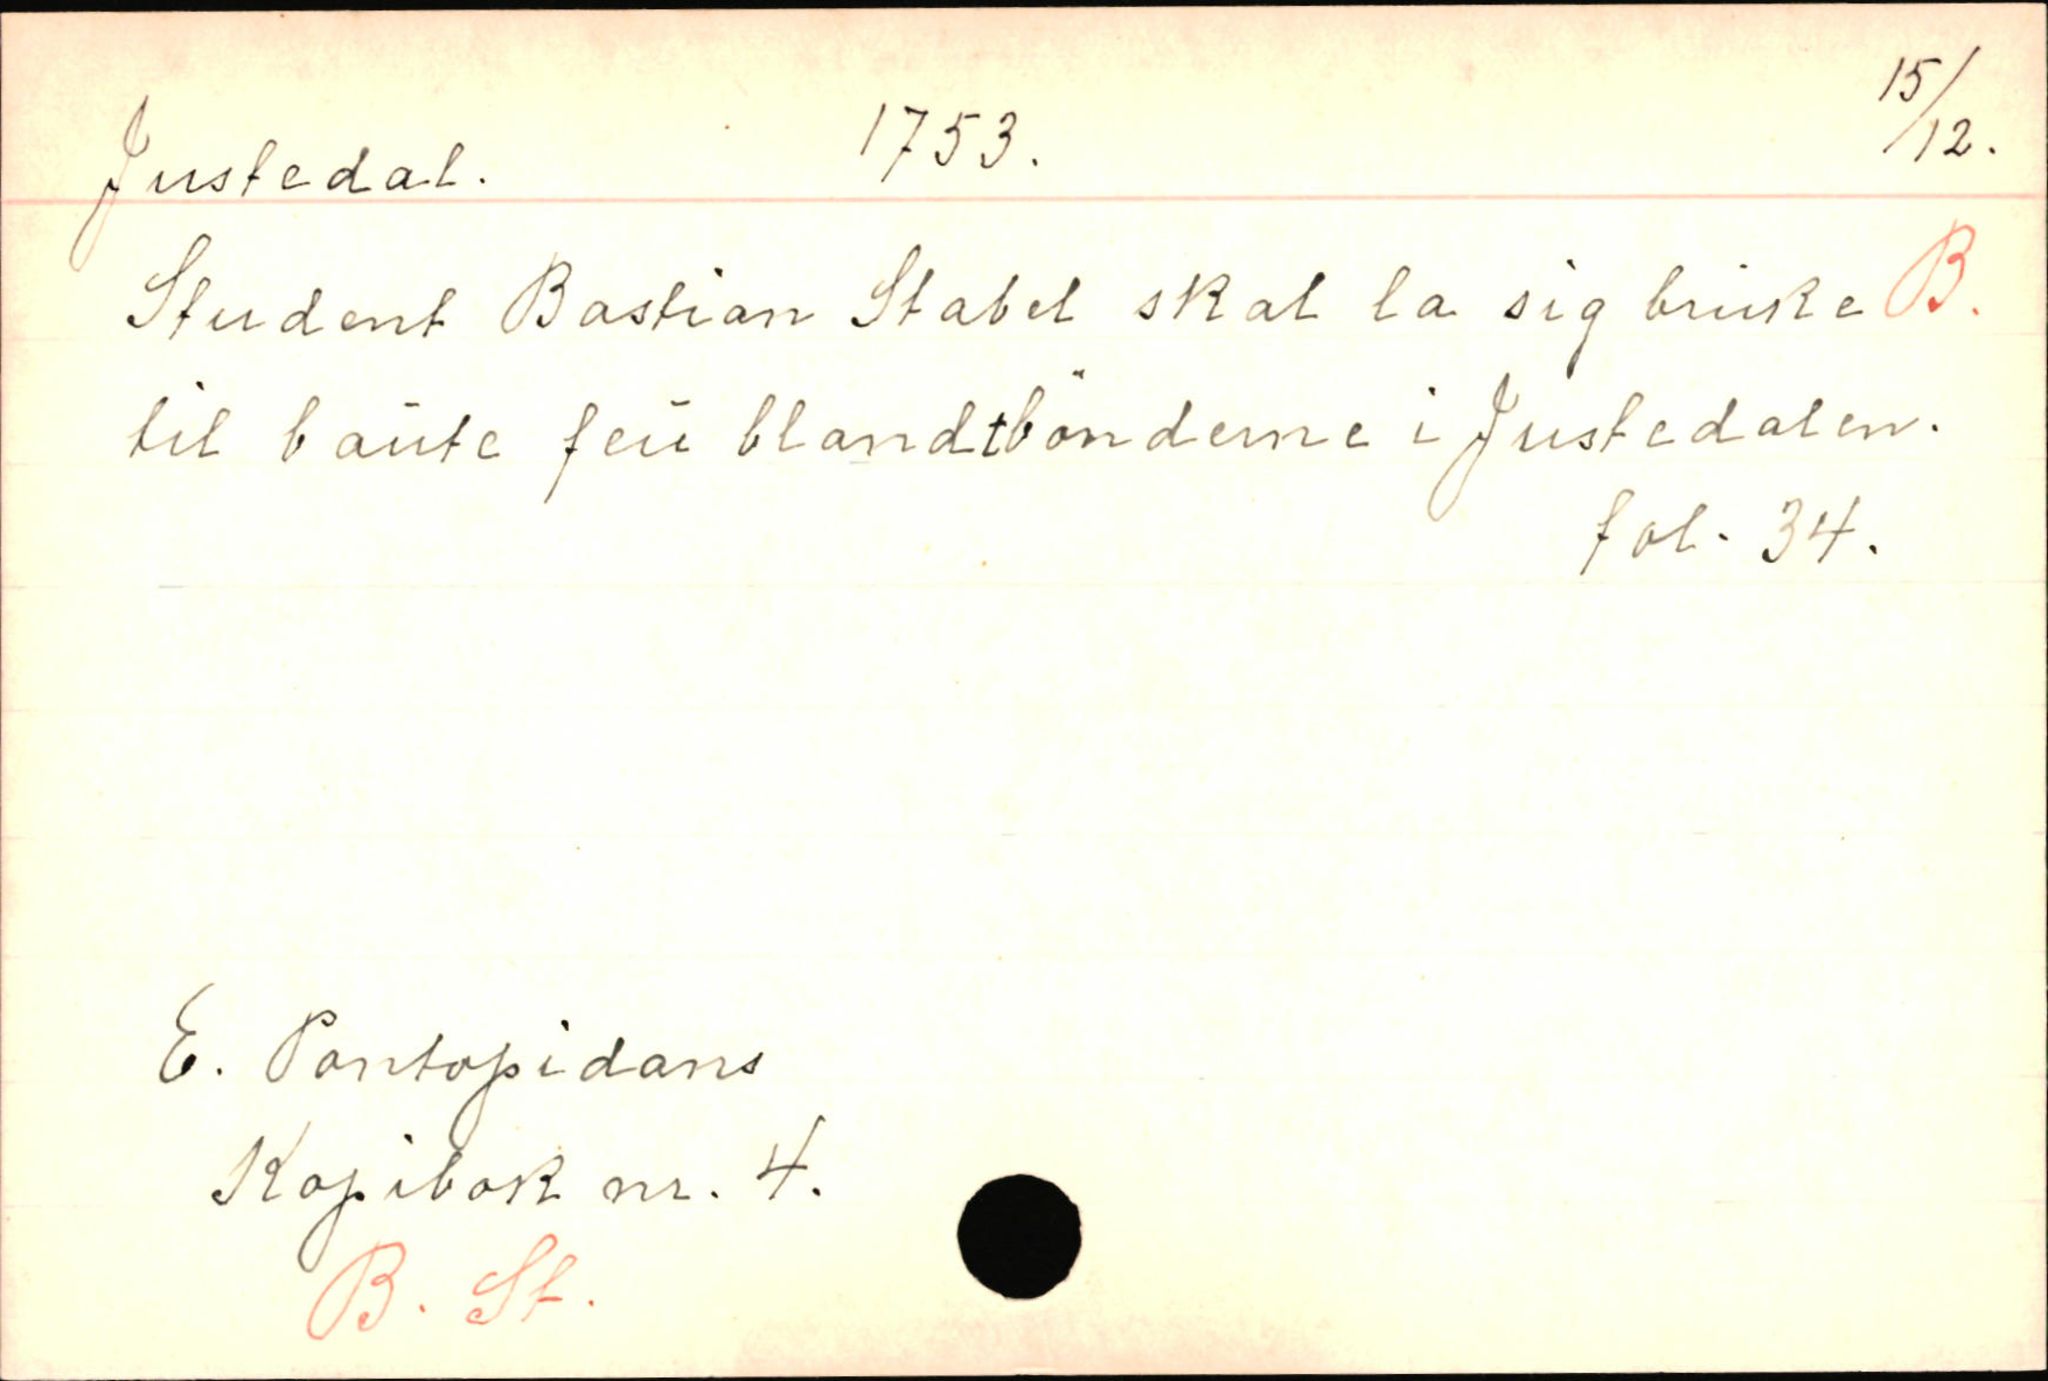 Justedal. 1753. 15/12.
Student Bastian Stabel skal la sig bruke B.
til baute feu blandt bönderne i Justedalen.
fol. 34.
E. Pontopidans
Kopibok nr. 4.
B. St.